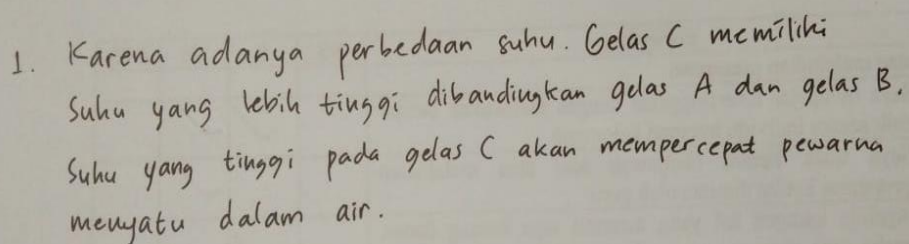 1. Karena adanya perbedaan suhu. Gelas C memiliki
Suhu yang lebih tinggi dibandingkan gelas A dan gelas B.
Suhu yang tinggi pada gelas C akan mempercepat pewarna
menyatu dalam air.